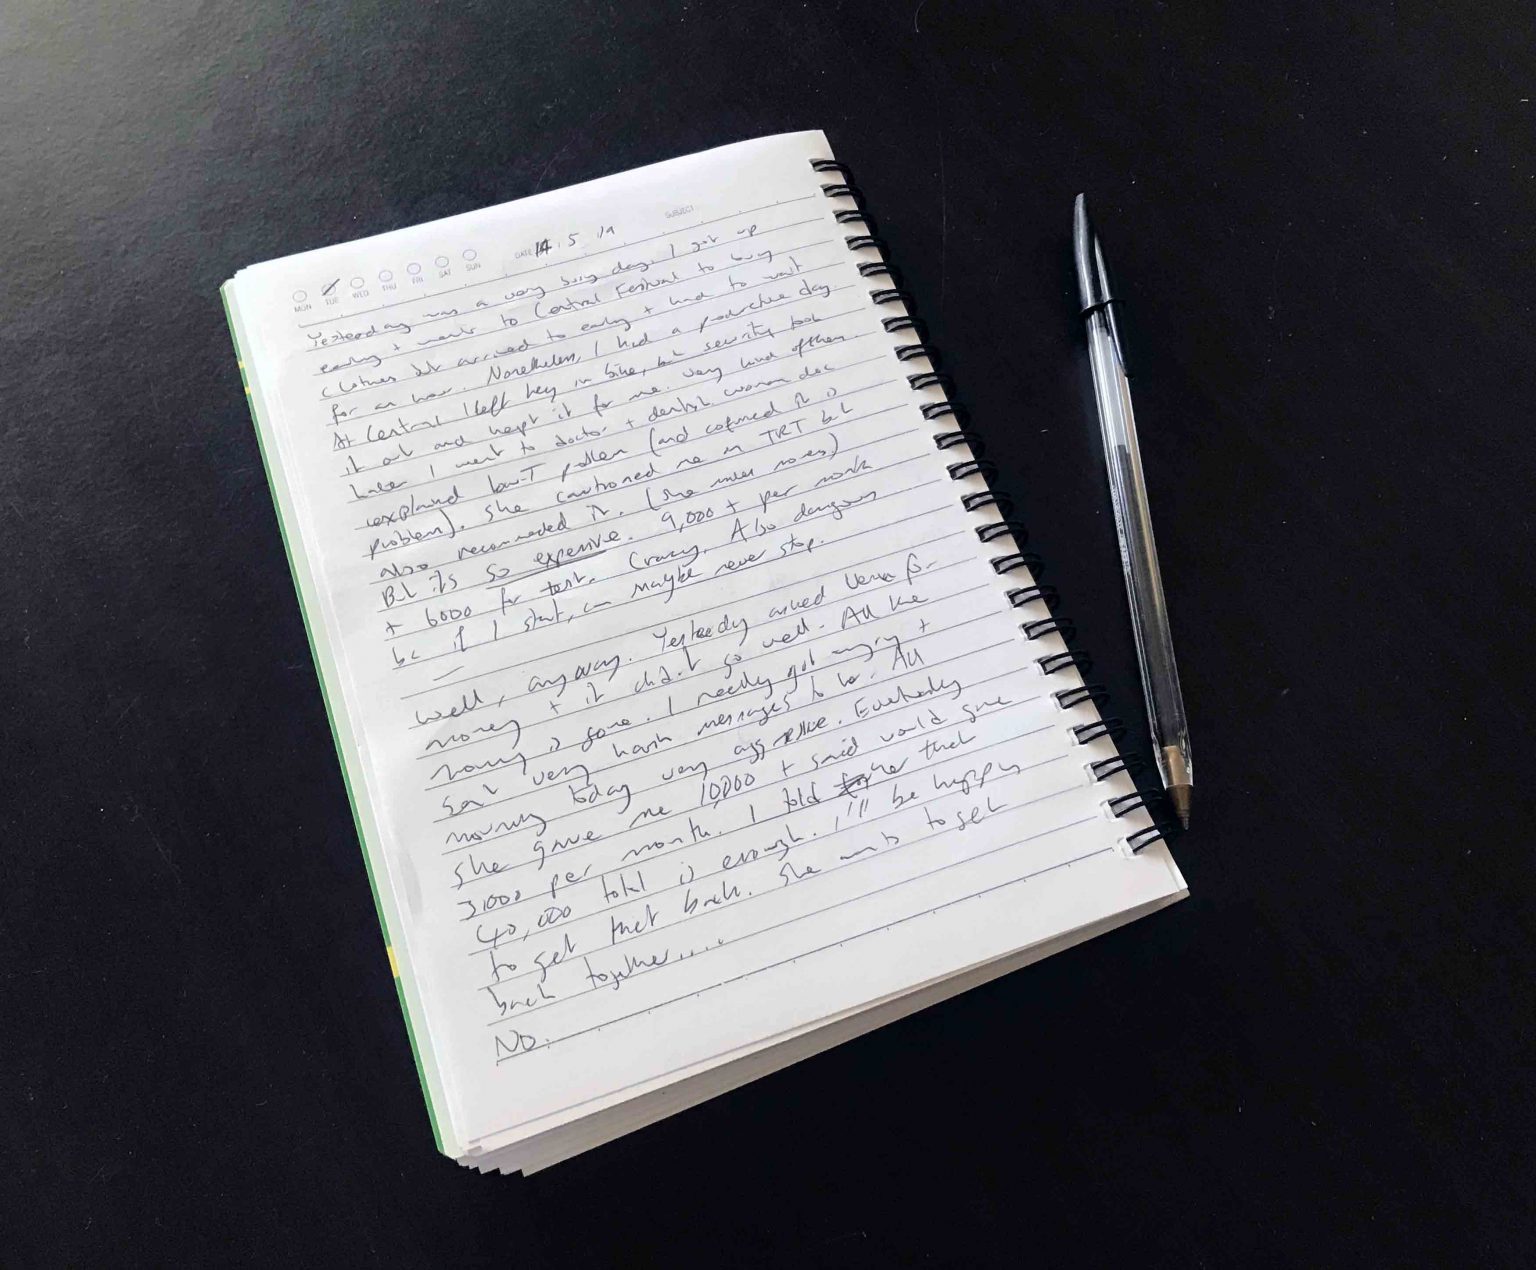 MON TUE WED THU FRI SAT SUN DATE 14.5.19 SUBJECT
Yesterday was a very busy day. I got up
early + went to Central Festival to buy
clothes but arrived to early + had to wait
for an hour. Nonetheless, I had a productive day.
At Central I left key in bike, but security took
it out and kept it for me. Very kind of them.
Later I went to doctor + dentist woman doc
explained low-T problem (and cofirmed it is
problem). She cautioned me on TRT but
also recommended it. (She notes)
But it's so expensive. 9,000 + per month
+ 6000 for test. Crazy. Also dangerous
bc if I start, can maybe never stop.
Well, anyway. Yesterday asked for
money + it didn't go well. All the
money is gone. I really got angry +
sent very harsh messages to her. All
morning today very aggressive. Eventually
she gave me 10,000 + said would give
3,000 per month. I told her that
40,000 total is enough. I'll be happy
to get that back. She wants to get
back together....
No.